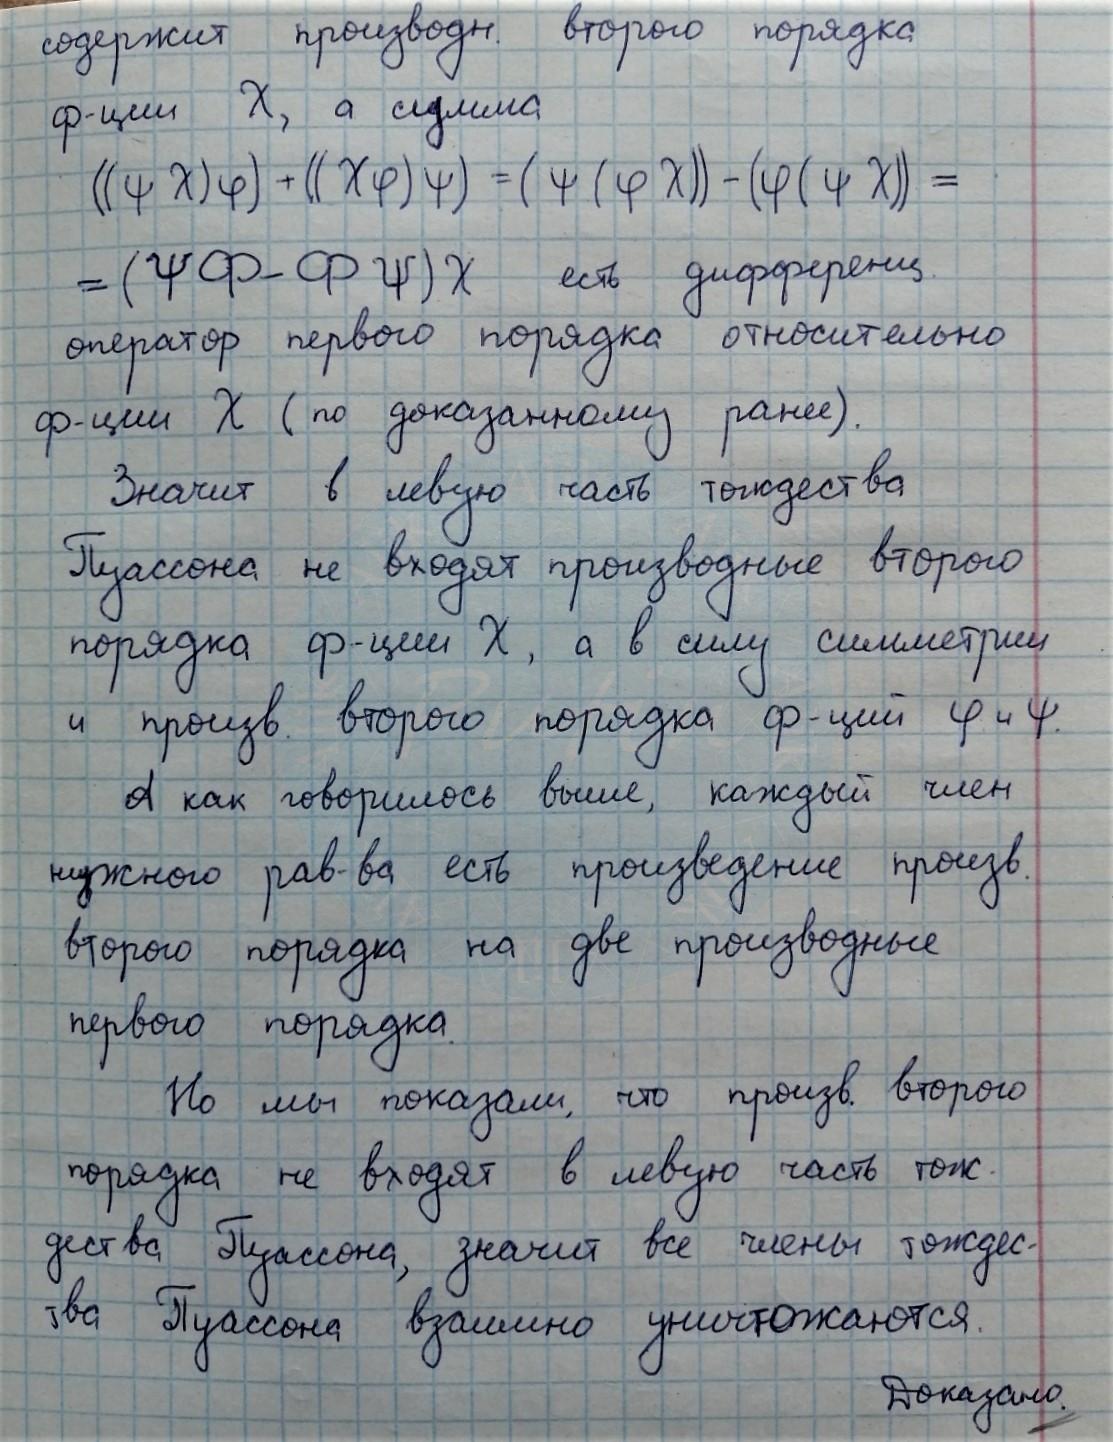 содержит производн. второго порядка
ф-ции χ, а сумма
((ψ χ)φ) + ((χφ)ψ) = (ψ(φ χ)) - (φ(ψ χ)) =
= (Ψ Ф - Ф Ψ)χ есть дифференц.
оператор первого порядка относительно
ф-ции χ (по доказанному ранее).
Значит в левую часть тождества
Пуассона не входят производные второго
порядка ф-ции χ, а в силу симметрии
и произв. второго порядка ф-ций φ и ψ.
А как говорилось выше, каждый член
нужного рав-ва есть произведение произв.
второго порядка на две производные
первого порядка.
Но мы показали, что произв. второго
порядка не входят в левую часть тож-
дества Пуассона, значит все члены тождес-
тва Пуассона взаимно уничтожаются.
Доказано.